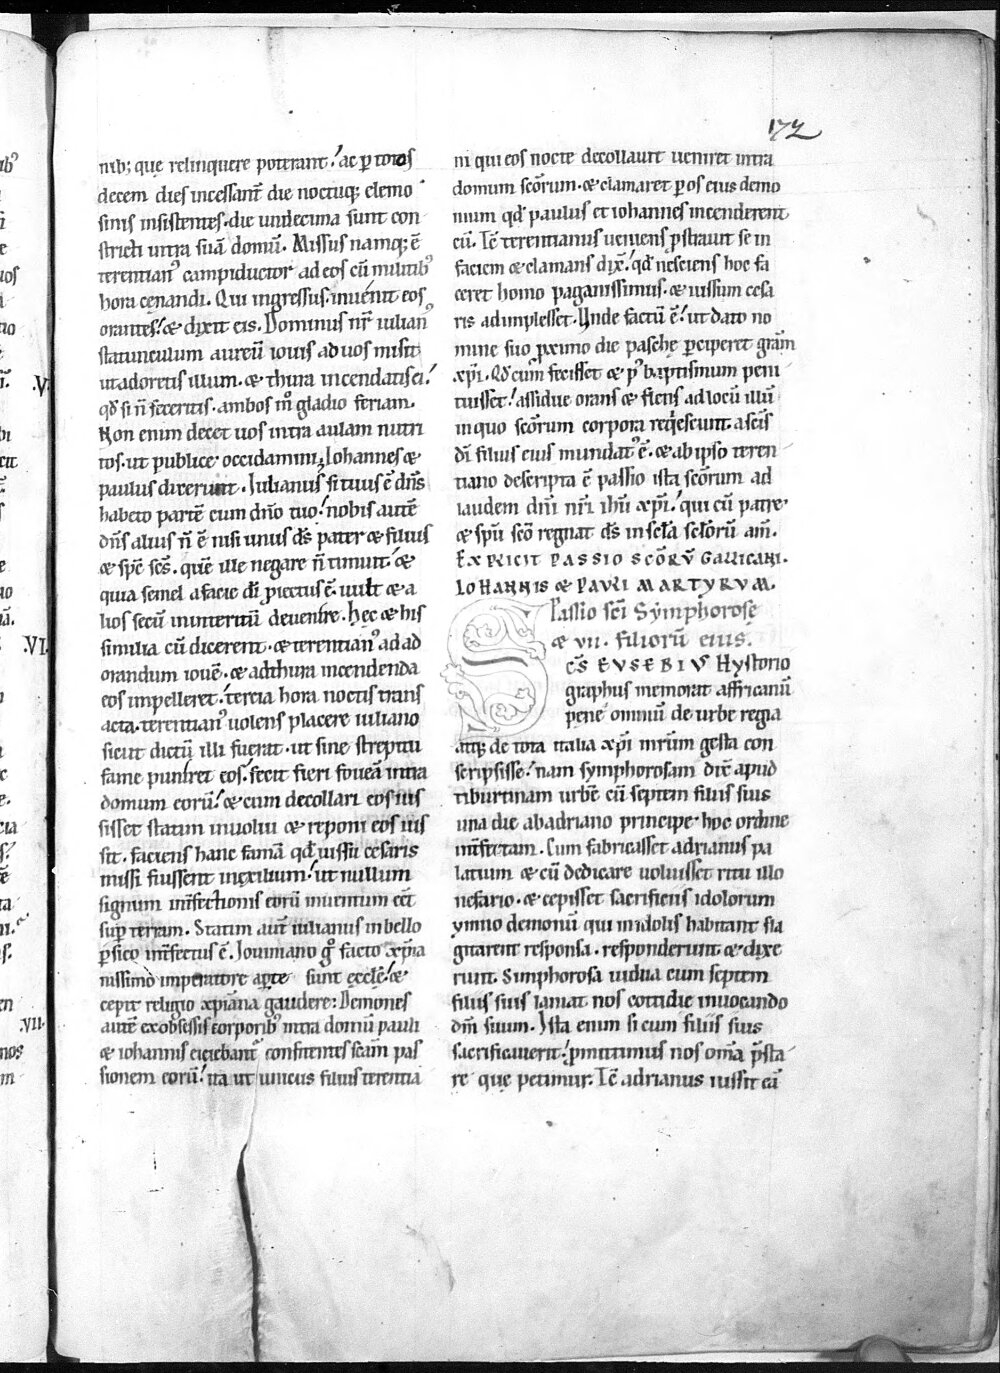 172
nib; que relinquere poterant! ac p totos
decem dies incessant̄ die noctuq; elemo
sinis insistentes. die undecima sunt con
stricti intra suā domū. Missus namq; ē
terentian᾽ campiductor ad eos cū militib᾽
hora cęnandi. Qui ingressus. inuenit eos
orantes! & dixit eis. Dominus nr̄ iulian᾽
statunculum aureū iouis ad uos misit
ut adoretis illum. & thura incendatis ei!
qđ si n̄ feceritis. ambos m᷒ gladio feriam.
Non enim decet uos intra aulam nutri
tos. ut publice occidamini; Iohannes &
paulus dixerunt. Iulianus si tuus ē dn̄s
habeto partē cum dn̄o tuo! nobis autē
dn̄s alius n̄ ē nisi unus ds̄ pater & filius
& spc̄ sc̄s. quē ille negare n̄ timuit! &
quia semel a facie dī proiectus ē. uult & a
lios secū in interitū deuenire. hęc & his
similia cū dicerent. & terentian᾽ ad ad
orandum iouē. & ad thura incendenda
eos impelleret! tercia hora noctis trans
acta. terentian᾽ uolens placere iuliano
sicut dictū illi fuerat. ut sine strepitu
fame puniret eos. fecit fieri foueā intra
domum eorū! & cum decollari eos ius
sisset statim inuolui & reponi eos ius
sit. faciens hanc famā qđ iussu cesaris
missi fuissent in exilium! ut nullum
signum int̄fectionis eorū inuentum ēēt
sup terram. Statim aut̄ iulianus in bello
psico int̄fectus ē. Iouiniano g᷒ facto xp̄ia
nissimo imperatore apte sunt ęcclę! &
cepit religio xp̄iana gaudere: Demones
autē ex obsessis corporib᾽ intra domū pauli
& iohannis eiciebant᾽ confitentes sc̄am pas
sionem eorū! ita ut unicus filius terentia
ni qui eos nocte decollauit ueniret intra
domum sc̄orum. & clamaret p os eius demo
nium qđ paulus et iohannes incenderent
eū. Tc̄ terentianus ueniens pstrauit se in
faciem & clamans dix̄! qđ nesciens hoc fa
ceret homo paganissimus. & iussum cesa
ris adimplesset. Unde factū ē! ut dato no
mine suo pximo die paschę pciperet grām
xp̄i. Qđ cum fecisset & p᾽ baptismum peni
tuisset! assidue orans & flens ad locū illū
in quo sc̄orum corpora reqescunt. a sc̄is
dī filius eius mundat᾽ ē. & ab ipso teren
tiano descripta ē passio ista sc̄orum ad
laudem dn̄i nr̄i ih̄u xp̄i! qui cū patre
& spū sc̄o regnat ds̄ in sc̄la sc̄lorū am̄.
EXPLICIT PASSIO SCŌRV̄ GALLICANI.
IOHANNIS & PAVLI MARTYRVM.
Passio sc̄i Symphorose
& VII. filiorū eius.
S
CS̄ EVSEBIVS Hystorio
graphus memorat affricanū
pene omniū de urbe regia
atq; de tota italia xp̄i mr̄um gesta con
scripsisse! nam symphorosam dic̄ apud
tiburtinam urbē cū septem filiis suis
una die ab adriano principe. hoc ordine
int̄fectam. Cum fabricasset adrianus pa
latium & cū dedicare uoluisset ritu illo
nefario. & cepisset sacrificiis idolorum
ymno demoniū qui in idolis habitant fla
gitarent responsa. responderunt & dixe
runt. Simphorosa uidua cum septem
filiis suis laniat nos cottidie inuocando
dm̄ suum. Ista enim si cum filiis suis
sacrificauerit! pmittimus nos om̄a p̄sta
re que petimur. Tc̄ adrianus iussit eā
.V.
.VI.
.VII.